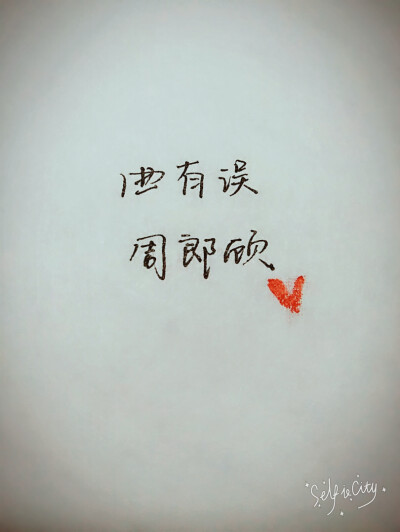 曲有误
周郎顾
Selfie City